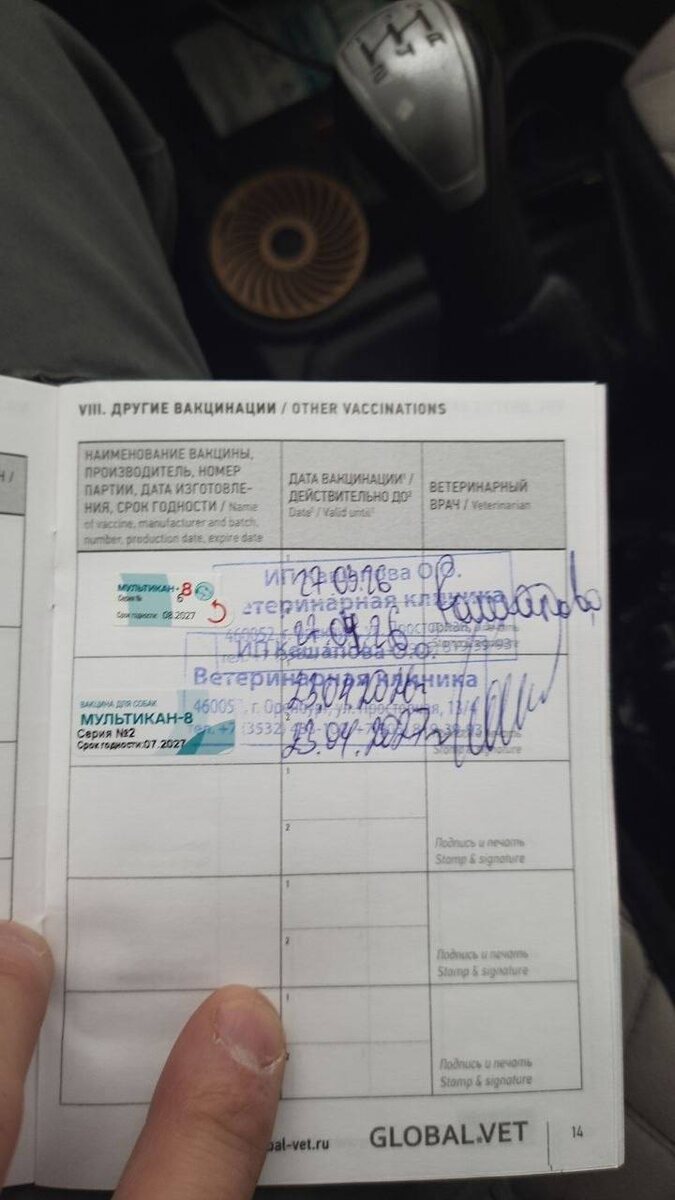 VIII. ДРУГИЕ ВАКЦИНАЦИИ / OTHER VACCINATIONS
НАИМЕНОВАНИЕ ВАКЦИНЫ,
ПРОИЗВОДИТЕЛЬ, НОМЕР
ПАРТИИ, ДАТА ИЗГОТОВЛЕ-
НИЯ, СРОК ГОДНОСТИ / Name
of vaccine, manufacturer and batch,
number, production date, expire date
ДАТА ВАКЦИНАЦИИ¹ /
ДЕЙСТВИТЕЛЬНО ДО²
Date¹ / Valid until²
ВЕТЕРИНАРНЫЙ
ВРАЧ / Veterinarian
МУЛЬТИКАН-8
Серия № 6
Срок годности 08.2027
27.03.26
ИП Кашапова О.О.
Ветеринарная клиника
ВАКЦИНА ДЛЯ СОБАК
МУЛЬТИКАН-8
Серия №2
Срок годности:07.2027
23.04.2026г
23.04.2027г
ИП Кашапова О.О.
Ветеринарная клиника
г. Оренбург, ул. Просторная, 13/4
Stamp & signature
1
2
Подпись и печать
Stamp & signature
1
2
Подпись и печать
Stamp & signature
1
Подпись и печать
Stamp & signature
bal-vet.ru
GLOBAL.VET
14